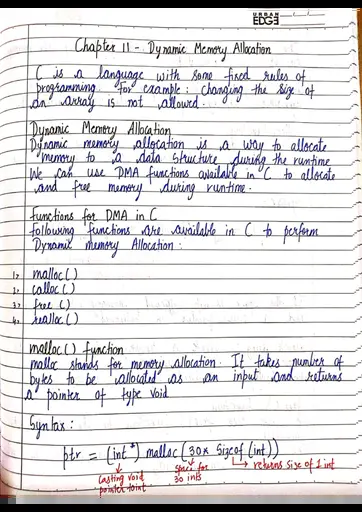 URBAN
EDGE
Chapter 11 - Dynamic Memory Allocation
C is a language with some fixed rules of
programming. For example: changing the size of
an array is not allowed.
Dynamic Memory Allocation
Dynamic memory allocation is a way to allocate
memory to a data structure during the runtime
We can use DMA functions available in C to allocate
and free memory during runtime.
Functions for DMA in C
Following functions are available in C to perform
Dynamic memory Allocation:
1> malloc()
2> calloc()
3> free()
4> realloc()
malloc() function
malloc stands for memory allocation. It takes number of
bytes to be allocated as an input and returns
a pointer of type void
Syntax:
ptr = (int*) malloc(30* sizeof(int))
casting void
pointer to int
space for
30 ints
returns size of 1 int